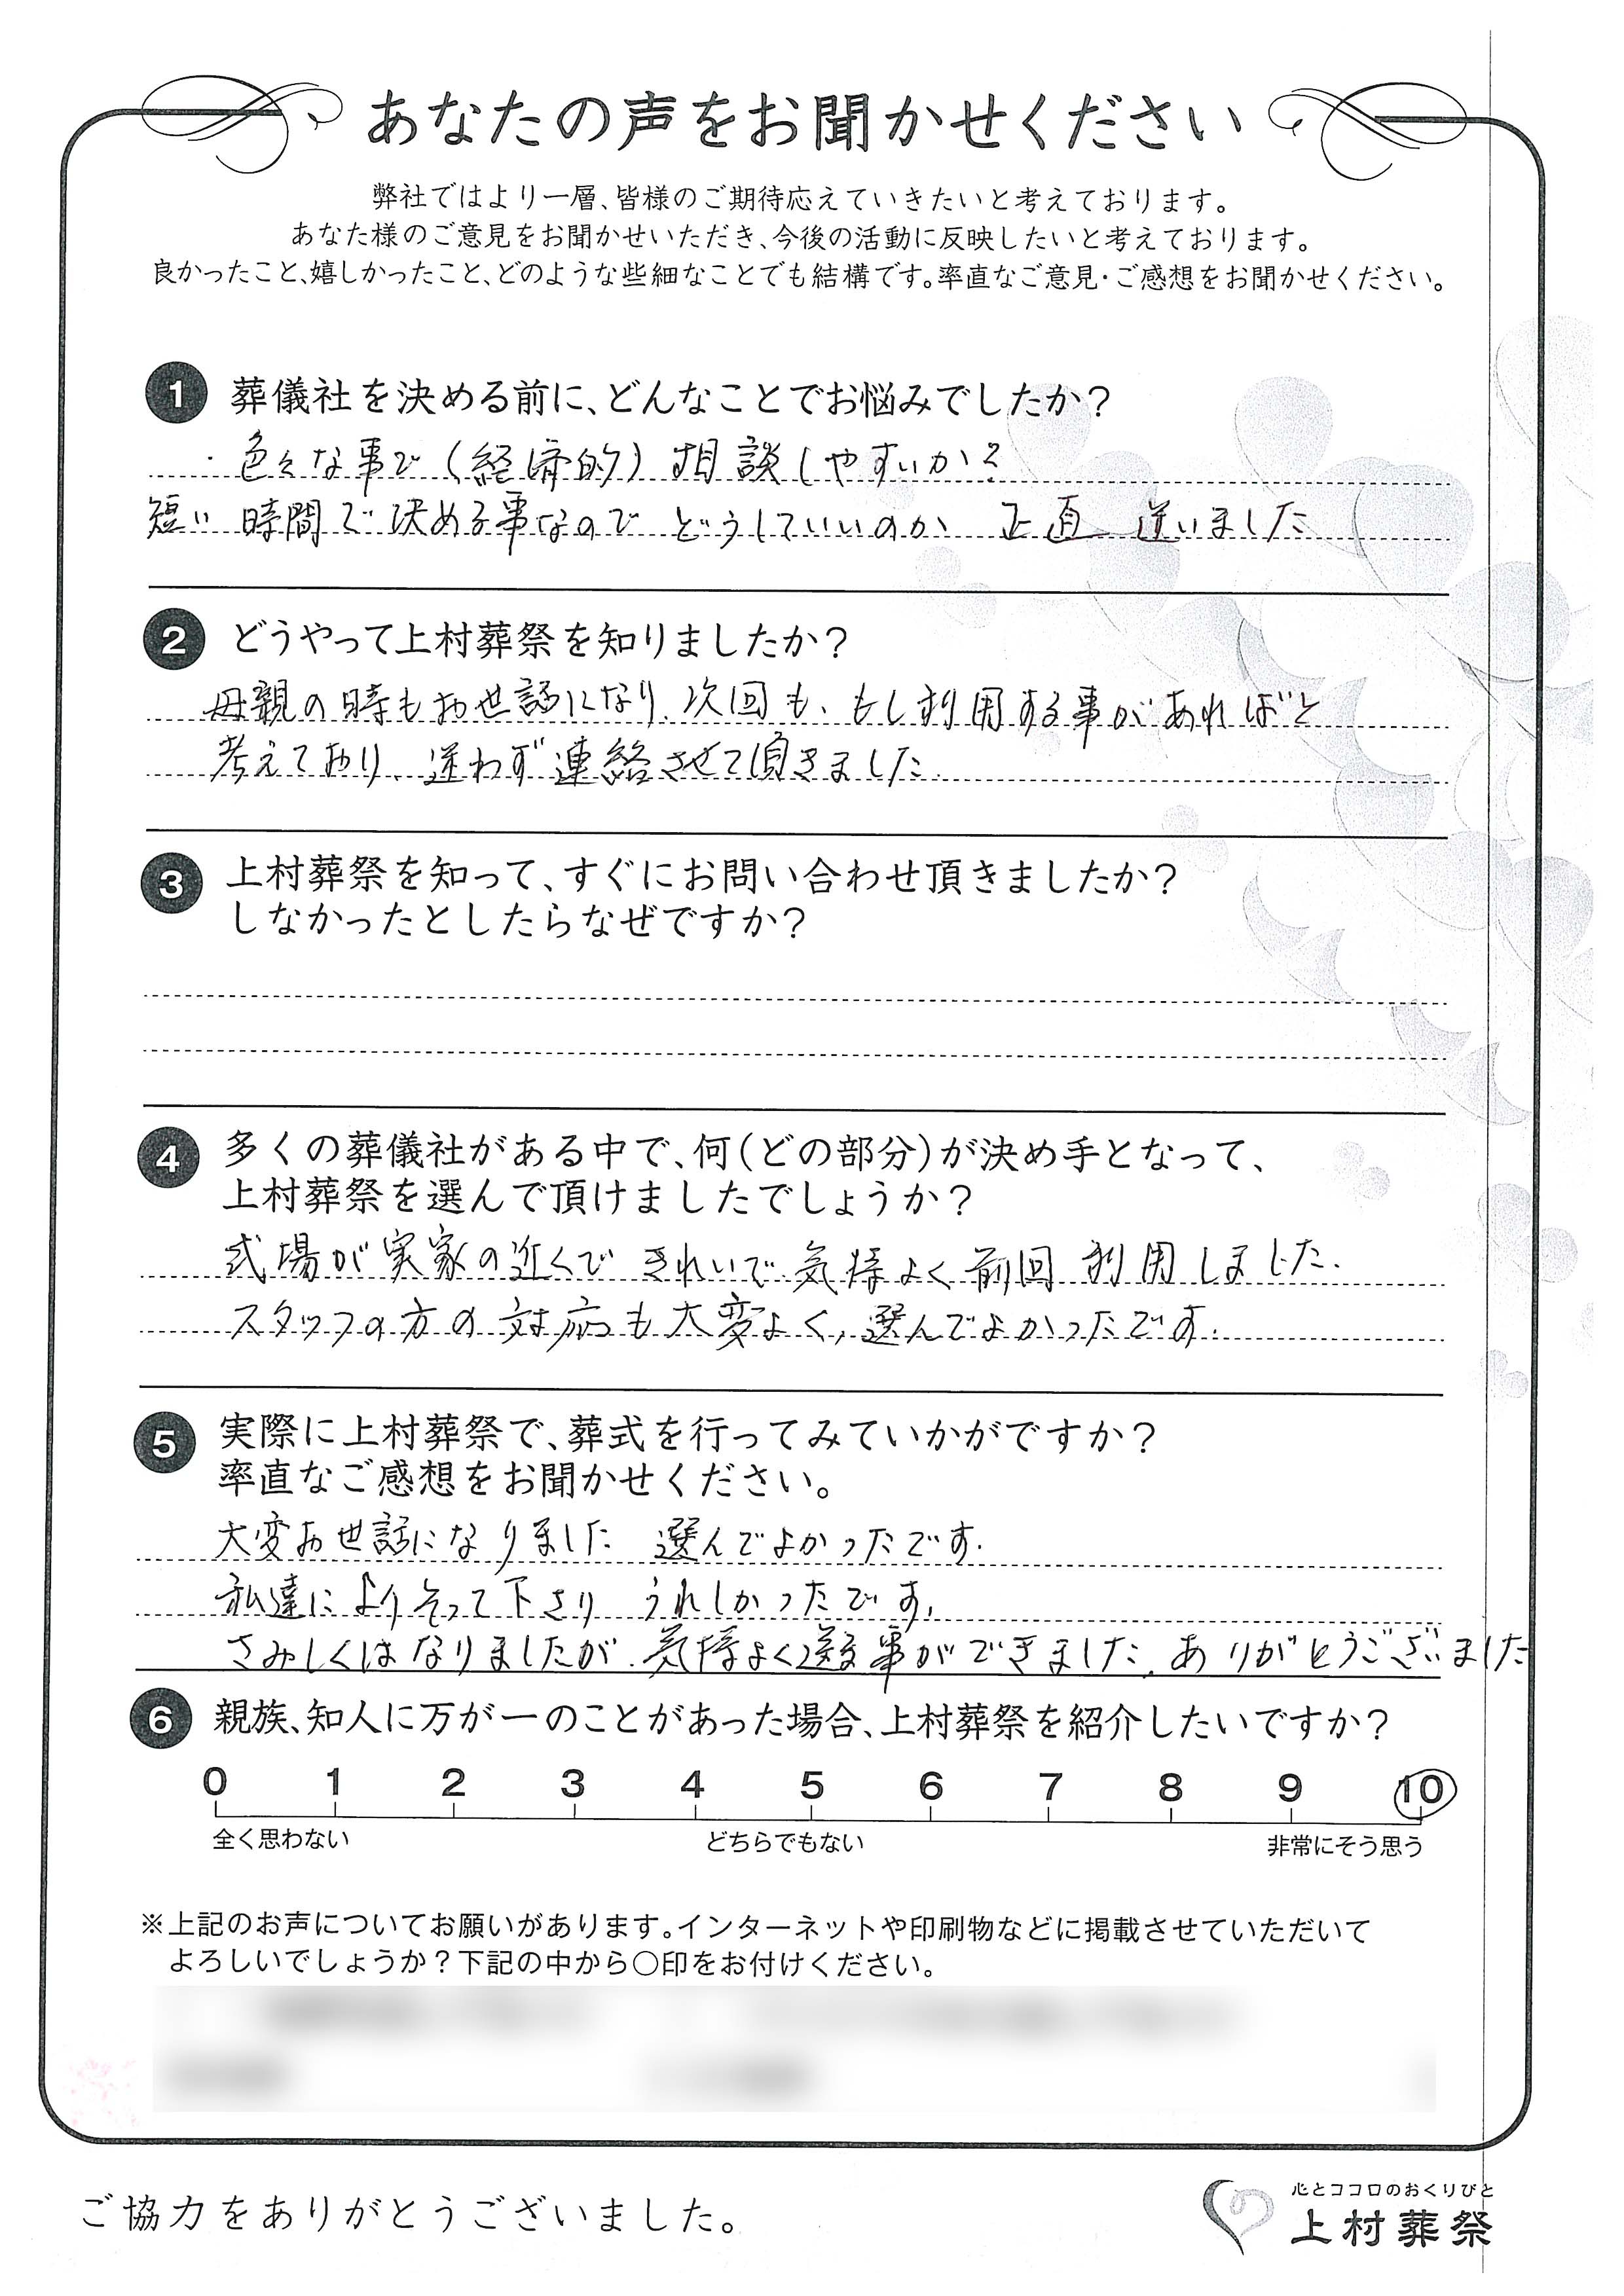 あなたの声をお聞かせください
弊社ではより一層、皆様のご期待応えていきたいと考えております。
あなた様のご意見をお聞かせいただき、今後の活動に反映したいと考えております。
良かったこと、嬉しかったこと、どのような些細なことでも結構です。率直なご意見・ご感想をお聞かせください。
1 葬儀社を決める前に、どんなことでお悩みでしたか?
・色々な事で(経済的)相談しやすいか?
短い時間で決める事なので どうしていいのか 正直 迷いました
2 どうやって上村葬祭を知りましたか?
母親の時もお世話になり、次回も、もし利用する事があればと
考えており、迷わず連絡させて頂きました.
3 上村葬祭を知って、すぐにお問い合わせ頂きましたか?
しなかったとしたらなぜですか?
4 多くの葬儀社がある中で、何(どの部分)が決め手となって、
上村葬祭を選んで頂けましたでしょうか?
式場が実家の近くで きれいで 気持よく前回 利用しました.
スタッフの方の対応も大変よく、選んでよかったです.
5 実際に上村葬祭で、葬式を行ってみていかがですか?
率直なご感想をお聞かせください。
大変お世話になりました 選んでよかったです.
私達によりそって下さり うれしかったです.
さみしくはなりましたが、気持よく送る事ができました. ありがとうございました
6 親族、知人に万が一のことがあった場合、上村葬祭を紹介したいですか?
0 1 2 3 4 5 6 7 8 9 10
全く思わない どちらでもない 非常にそう思う
※上記のお声についてお願いがあります。インターネットや印刷物などに掲載させていただいて
よろしいでしょうか?下記の中から○印をお付けください。
ご協力をありがとうございました。
心とココロのおくりびと
上村葬祭